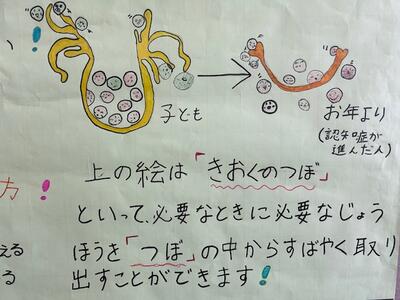 、!
子ども
お年より
(認知症が
進んだ人)
上の絵は「きおくのつぼ」
方!
といって、必要なときに必要なじょう
える
ほうを「つぼ」の中からすばやく取り
る
出すことができます!